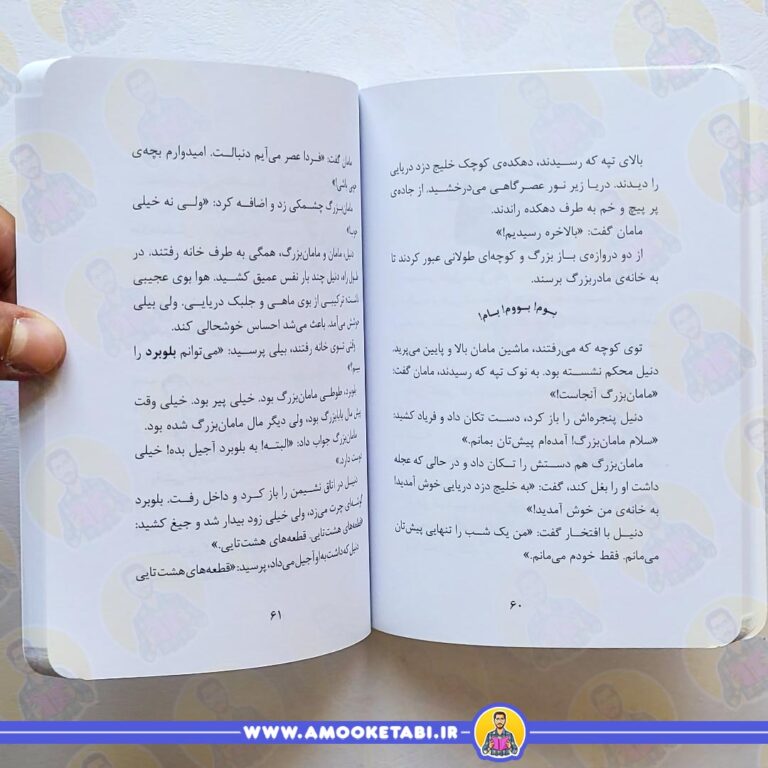 بالای تپه که رسیدند، دهکده‌ی کوچک خلیج دزد دریایی
را دیدند. دریا زیر نور عصرگاهی می‌درخشید. از جاده‌ی
پر پیچ و خم به طرف دهکده راندند.
مامان گفت: «بالاخره رسیدیم!»
از دو دروازه‌ی باز بزرگ و کوچه‌ای طولانی عبور کردند تا
به خانه‌ی مادربزرگ برسند.
بوم! بووم! بام!
توی کوچه که می‌رفتند، ماشین مامان بالا و پایین می‌پرید.
دنیل محکم نشسته بود. به نوک تپه که رسیدند، مامان گفت:
«مامان‌بزرگ آنجاست!»
دنیل پنجره‌اش را باز کرد، دست تکان داد و فریاد کشید:
«سلام مامان‌بزرگ! آمده‌ام پیش‌تان بمانم.»
مامان‌بزرگ هم دستش را تکان داد و در حالی که عجله
داشت او را بغل کند، گفت: «به خلیج دزد دریایی خوش آمدید!
به خانه‌ی من خوش آمدید!»
دنیل با افتخار گفت: «من یک شب را تنهایی پیش‌تان
می‌مانم. فقط خودم می‌مانم.»
۶۰
مامان گفت: «فردا عصر می‌آیم دنبالت. امیدوارم بچه‌ی
خوبی باشی!»
مامان‌بزرگ چشمکی زد و اضافه کرد: «ولی نه خیلی
خوب!»
دنیل، مامان و مامان‌بزرگ، همگی به طرف خانه رفتند. در
طول راه، دنیل چند بار نفس عمیق کشید. هوا بوی عجیبی
داشت؛ ترکیبی از بوی ماهی و جلبک دریایی. ولی بیلی
خوشش می‌آمد. باعث می‌شد احساس خوشحالی کند.
وقتی توی خانه رفتند، بیلی پرسید: «می‌توانم بلوبرد را
ببینم؟»
بلوبرد، طوطی مامان‌بزرگ بود. خیلی پیر بود. خیلی وقت
پیش مال بابابزرگ بود، ولی دیگر مال مامان‌بزرگ شده بود.
مامان‌بزرگ جواب داد: «البته! به بلوبرد آجیل بده! خیلی
دوست دارد.»
دنیل در اتاق نشیمن را باز کرد و داخل رفت. بلوبرد
گوشه‌ای چرت می‌زد، ولی خیلی زود بیدار شد و جیغ کشید:
«قطعه‌های هشت‌تایی. قطعه‌های هشت‌تایی.»
دنیل که داشت به او آجیل می‌داد، پرسید: «قطعه‌های هشت‌تایی
۶۱
WWW.AMOOKETABI.IR